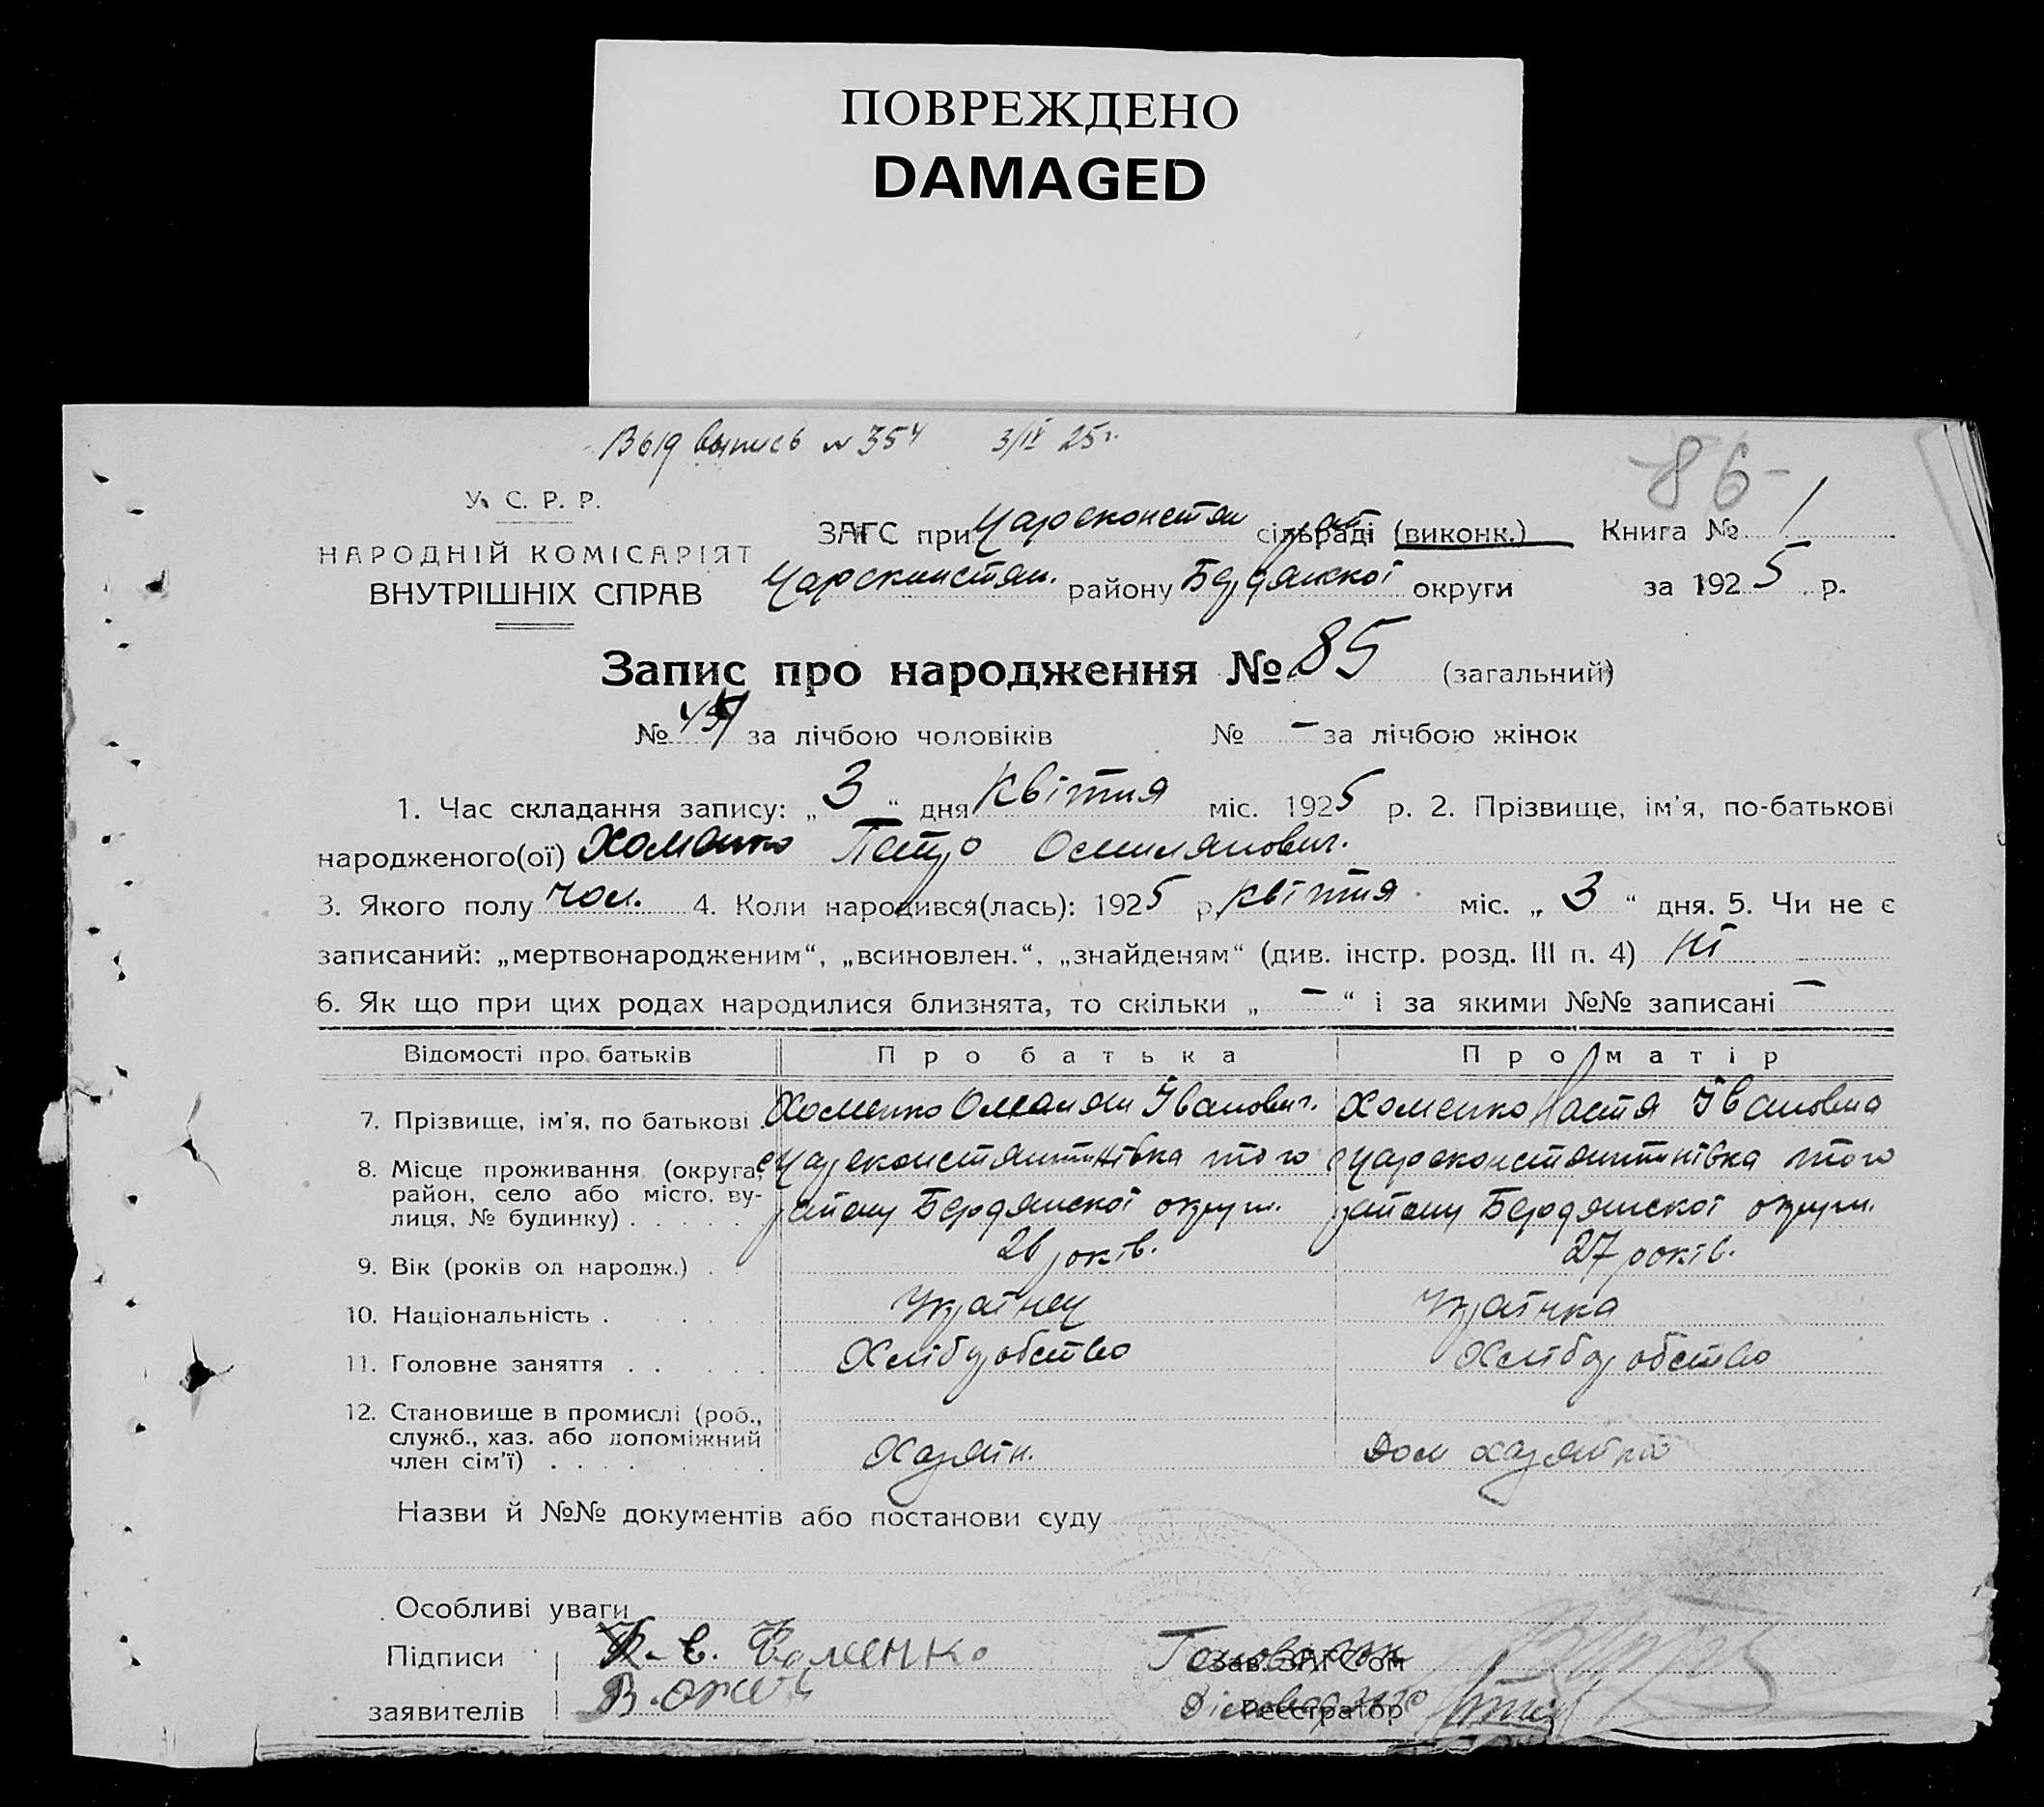 ПОВРЕЖДЕНО
DAMAGED
Выд выпись № 354 3/IV 25 г.
86
У. С. Р. Р.
НАРОДНІЙ КОМІСАРІЯТ
ВНУТРІШНІХ СПРАВ
ЗАГС при Цареконстан сільраді (виконк.) Книга № 1
Цареконстан. району Бердянської округи за 1925 р.
Запис про народження № 85 (загальний)
№ за лічбою чоловіків № – за лічбою жінок
1. Час складання запису: „3“ дня Квітня міс. 1925 р. 2. Прізвище, ім'я, по-батькові
народженого(ої) Хоменко Петро
3. Якого полу чол. 4. Коли народився(лась): 1925 р. квітня міс. „3“ дня. 5. Чи не є
записаний: „мертвонародженим“, „всиновлен.“, „знайденям“ (див. інстр. розд. III п. 4) ні
6. Як що при цих родах народилися близнята, то скільки „–“ і за якими №№ записані –
Відомості про батьків Про батька Про матір
7. Прізвище, ім'я, по батькові Хоменко Омелян Іванович. Хоменко Настя Івановна
8. Місце проживання (округа, район, село або місто, вулиця, № будинку) с Цареконстянтинівка того району Бердянскої округи. с Цареконстянтинівка того району Бердянскої округи.
9. Вік (років од народж.) 26 років. 27 років.
10. Національність Українец Українка
11. Головне заняття Хліборобство Хліборобство
12. Становище в промислі (роб., служб., хаз. або допоміжний член сім'ї) Хазяїн. Дом хазяйка
Назви й №№ документів або постанови суду
Особливі уваги
Підписи Хоменко Зав. ЗАГС'ом
заявителів Реєстратор